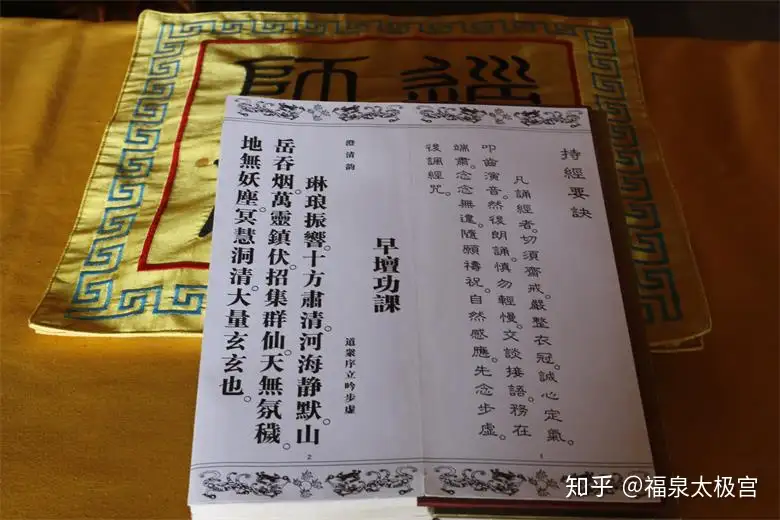 經師
持經要訣
凡誦經者。切須齋戒。嚴整衣冠。誠心定氣。
叩齒演音。然後朗誦。慎勿輕慢。交談接語。務在
端肅。念念無違。隨願禱祝。自然感應。先念步虛。
後誦經咒。
1
早壇功課
澄清韵 道衆序立吟步虛
琳琅振響。十方肅清。河海静默。山
岳吞烟。萬靈鎮伏。招集群仙。天無氛穢。
地無妖塵。冥慧洞清。大量玄玄也。
2
知乎 @福泉太极宫